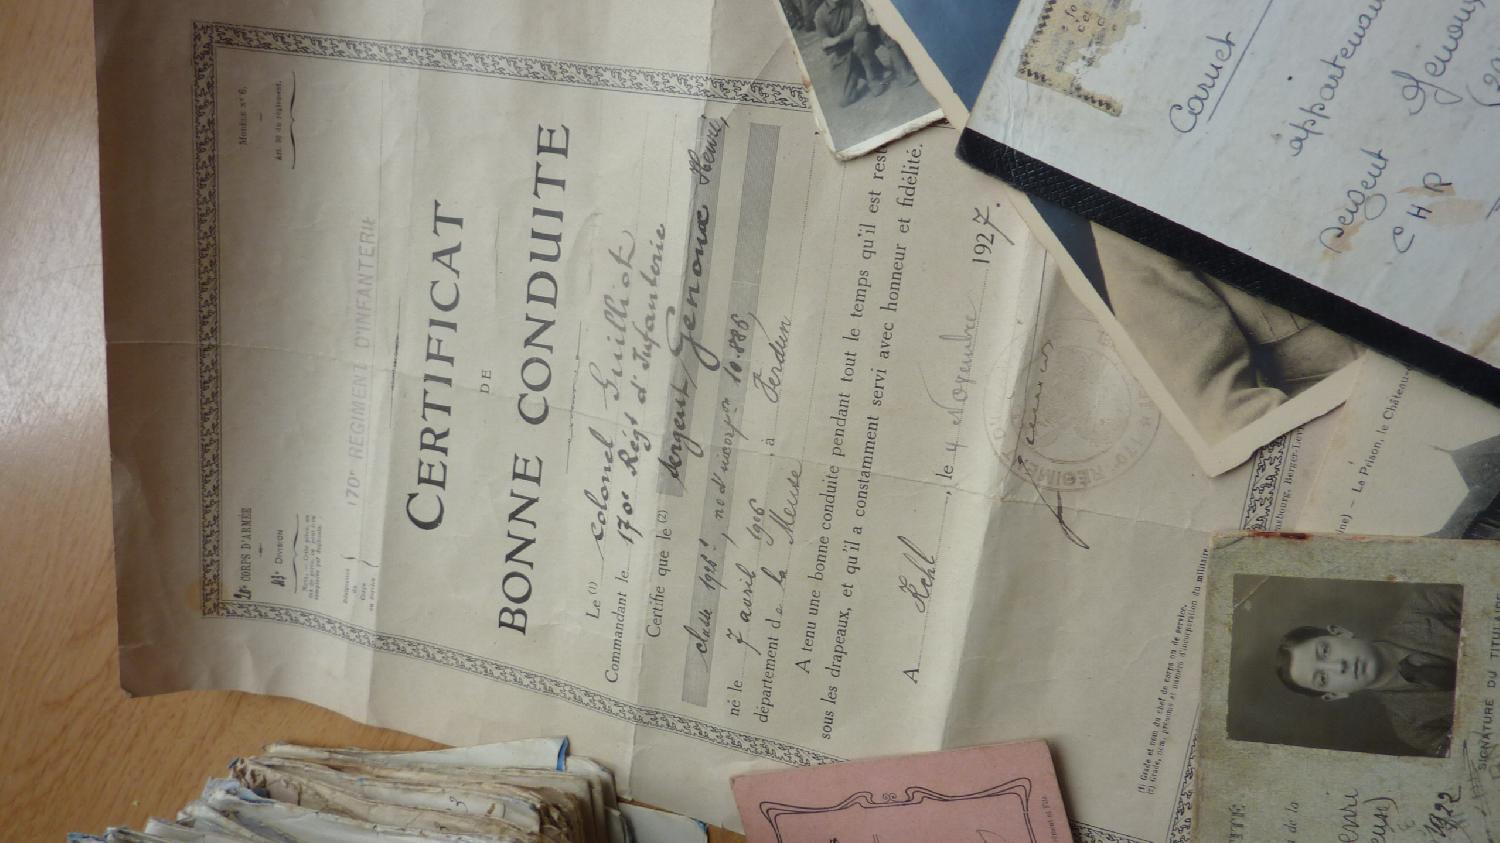 CORPS D'ARMÉE
DIVISION
Modèle nº 6.
Art. du règlement.
170e REGIMENT D'INFANTERIE
CERTIFICAT
DE
BONNE CONDUITE
Le (1) Colonel Guilliot
Commandant le 170e Régt d'Infanterie
Certifie que le (2) Sergent Genoux Henri,
classe 1926, no d'incorpon 10.886
né le 7 avril 1906 à Verdun
département de la Meuse
A tenu une bonne conduite pendant tout le temps qu'il est resté
sous les drapeaux, et qu'il a constamment servi avec honneur et fidélité.
A Kehl, le 4 Novembre 1927.
(1) Grade et nom du chef de corps ou de service.
(2) Grade, nom, prénoms et numéro d'incorporation du militaire
Carnet
appartenant
Sergent Genoux
C H R
La Prison, le Château
SIGNATURE DU TITULAIRE
de la
1922